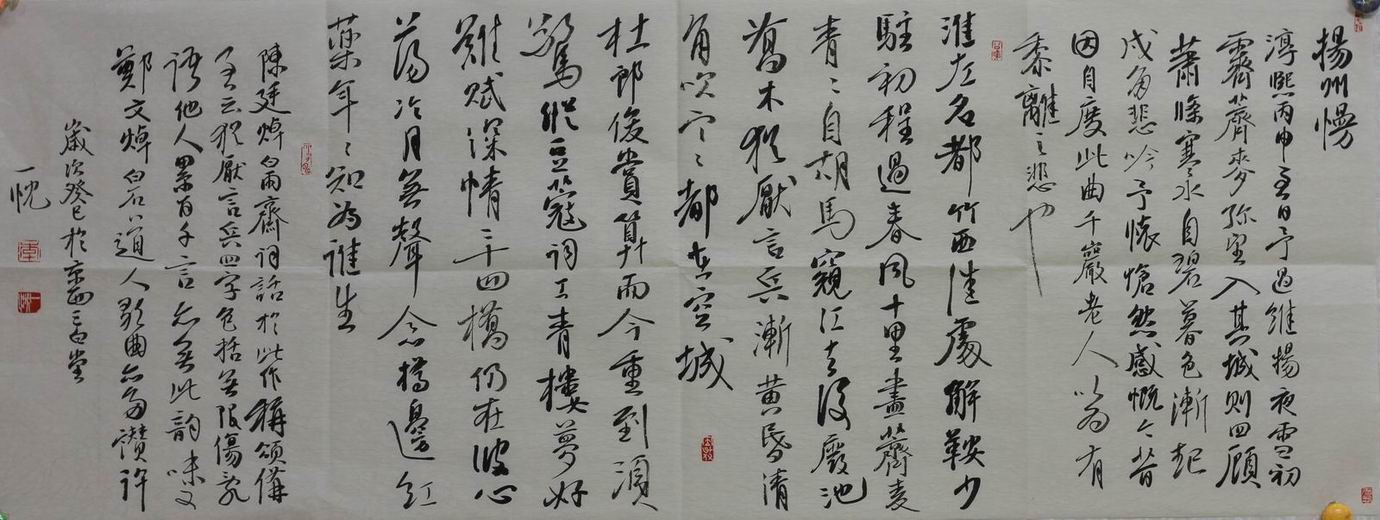 揚州慢
淳熙丙申至日予過維揚夜雪初
霽薺麥弥望入其城則四顧
蕭條寒水自碧暮色漸起
戍角悲吟予懷愴然感慨今昔
因自度此曲千巖老人以為有
黍離之悲也
淮左名都竹西佳處解鞍少
駐初程過春風十里盡薺麦
青々自胡馬窺江去後廢池
喬木猶厭言兵漸黄昏清
角吹寒都在空城
杜郎俊賞算而今重到須
驚縱豆蔻詞工青樓夢好
難賦深情二十四橋仍在波心
蕩冷月無聲念橋邊紅
藥年々知為誰生
陳廷焯白雨齋詞話於此作稱頌備
至云猶厭言兵四字包括無限傷亂
語他人累百千言亦無此韵味又
鄭文焯白石道人歌曲亦多讚許
歲次癸巳於京
一忱